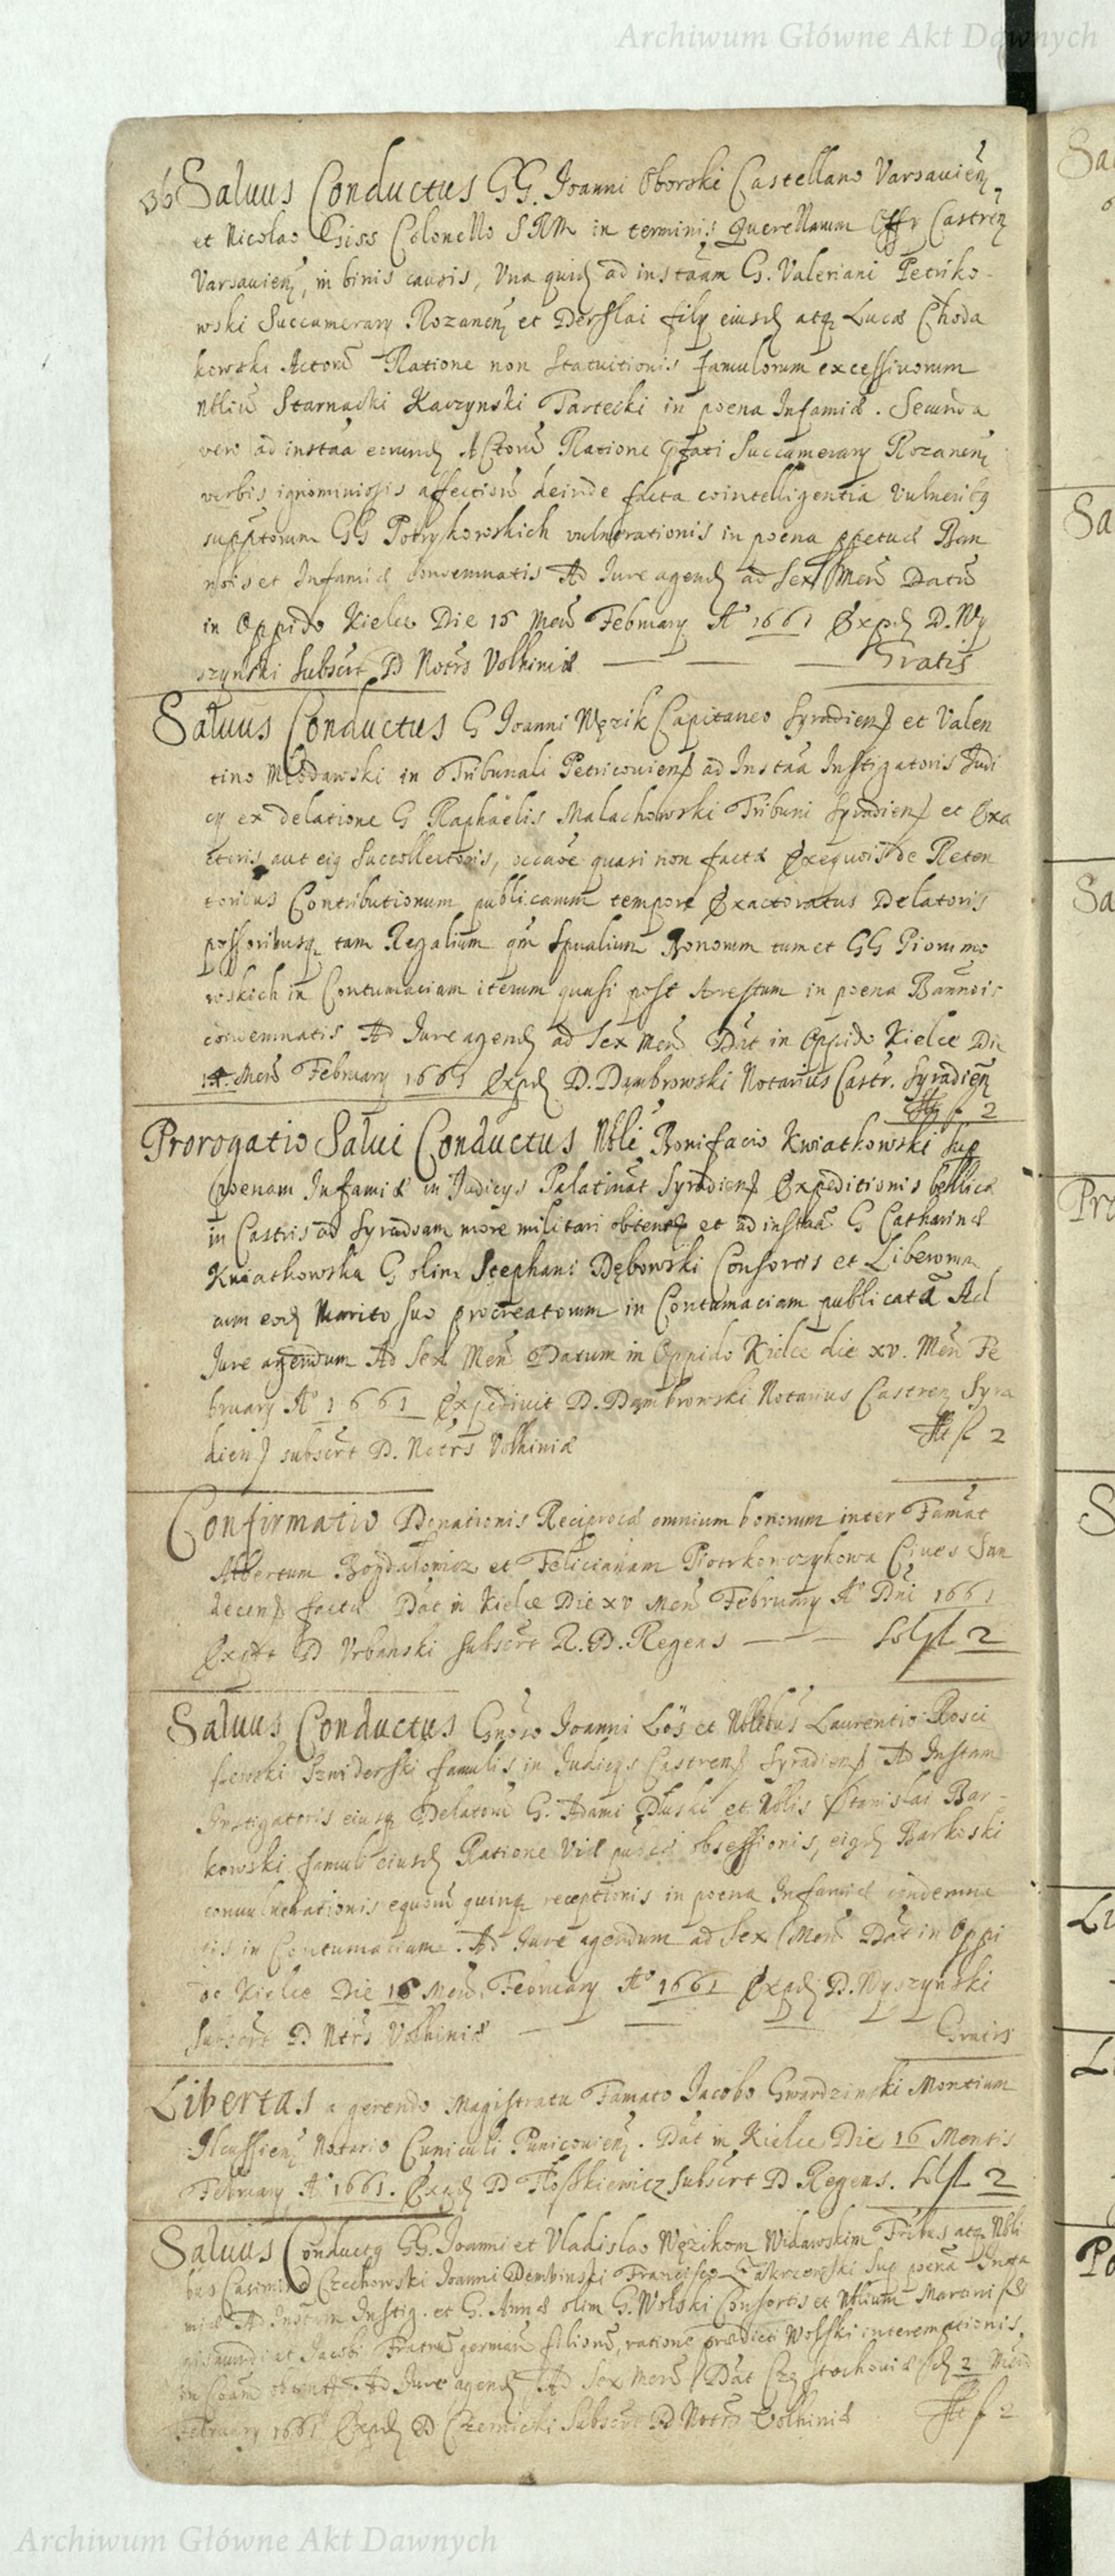 Archiwum Główne Akt Dawnych
36 Saluus Conductus GG. Joanni Oborski Castellano Varsauien
et Nicolao Giss Colonello SRM in terminis Querellarum Offi Castren
Varsauien, in binis causis, Vna quid ad instaam G. Valeriani Petriko-
wski Succamerary Rozanen et Derslai fily eiusd atq Lucæ Choda
kowski Actorū Ratione non Statuitionis famulorum excessiuorum
Nbliū Starnaski Kaczynski Tartecki in poena Infamiæ. Secunda
vero ad instaa eorund Actorū Ratione pfati Succamerary Rozanen
verbis ignominiosis affectiois deinde facta cointelligentia Vulneribq
supptorum GG Potrykowskich vulnerationis in poena ppetuæ Ban
nois et Infamiæ condemnatis Ad Jure agend ad Sex Men Datū
in Oppido Kielce Die 15 Men February A° 1661 Expd D. Wy
szynski subscrt D Notrs Volhiniæ — — — Gratis
Saluus Conductus G Joanni Wężik Capitaneo Syradien et Valen
tino Młodawski in Tribunali Petricouien ad Instaa Instigatoris Judi
cy ex delatione G Raphaelis Malachowski Tribuni Syradien et Exa
ctoris aut eiq Succollectoris, occaōe quasi non factæ Exequois de Reten
toribus Contributionum publicarum tempore Exactoratus Delatoris
possoribusq tam Regalium qm Spualium Bonorum tum et GG Piorumo
wskich in Contumaciam iterum quasi post Arestum in poena Bannois
condemnatis Ad Jure agend ad Sex Men Dat in Oppido Kielce Die
14. Men February 1661 Expd D. Dąmbrowski Notarius Castr. Syradien
fl 2
Prorogatio Salui Conductus Nbli Bonifacio Kwiatkowski Sup
poenam Infamiæ in Judicys Palatinat Syradien Expeditionis bellicæ
in Castris ad Syradiam more militari obtent et ad instaā G Catharinæ
Kwiatkowska G olim Stephani Dębowski Consortis et Liberorum
cum eod Marito suo procreatorum in Contumaciam publicatā Ad
Jure agendum Ad Sex Men Datum in Oppido Kielce die xv. Men Fe
bruary A° 1661 Expediuit D. Dąmbrowski Notarius Castren Syra
dien subscrt D. Notrs Volhiniæ fl 2
Confirmatio Donationis Reciprocæ omnium bonorum inter Famat
Albertum Bogdałowicz et Felicianam Piotrkowczykowa Ciues San
decen factæ Dat in Kielce Die xv Men February A° Dni 1661
D Vrbanski subscrt R. D. Regens — — Sol fl 2
Saluus Conductus Gnoso Joanni Lös et Nblibus Laurentio Rosci
szewski Szwiderski famulis in Judicys Castren Syradien Ad Instam
Instigatoris eiusq Delatorū G. Adami Dłuski et Nblis Stanislai Bar-
kowski famuli eiusd Ratione Viæ obsessionis, eiqd Barkoski
conuulnerationis equorū quinq receptionis in poena Infamiæ condemna
tis in Contumaciam. Ad Jure agendum ad Sex Men Dat in Oppi
do Kielce Die 16 Men February A° 1661 Expd D. Wyszynski
subscrt D Ntrs Volhiniæ — — — Gratis
Libertas a gerendo Magistratu Famato Jacobo Gwardzinski Montium
Ilcussien Notario Cuniculi Punicouien. Dat in Kielce Die 16 Mensis
February A° 1661. Expd D Floszkiewicz subscrt D Regens. Sol fl 2
Saluus Conductq GG. Joanni et Vladislao Wężikom Widawskim Fribus atq Nbli
bus Casimiro Czechowski Joanni Dembinski Francisco Zakrzewski Sup poena Infa
miæ Ad Instam Instig. et G. Annæ olim G. Wolski Consortis et Nblium Martini
et Jacobi Fratrū german filiorū, ratione prædicti Wolski interemptionis,
in Coam obtent Ad Jure agend Ad Sex Men Dat Częstochouiæ 2 Men
February 1661 Expd D Czernicki Subscrt D Notrs Volhiniæ fl 2
Archiwum Główne Akt Dawnych